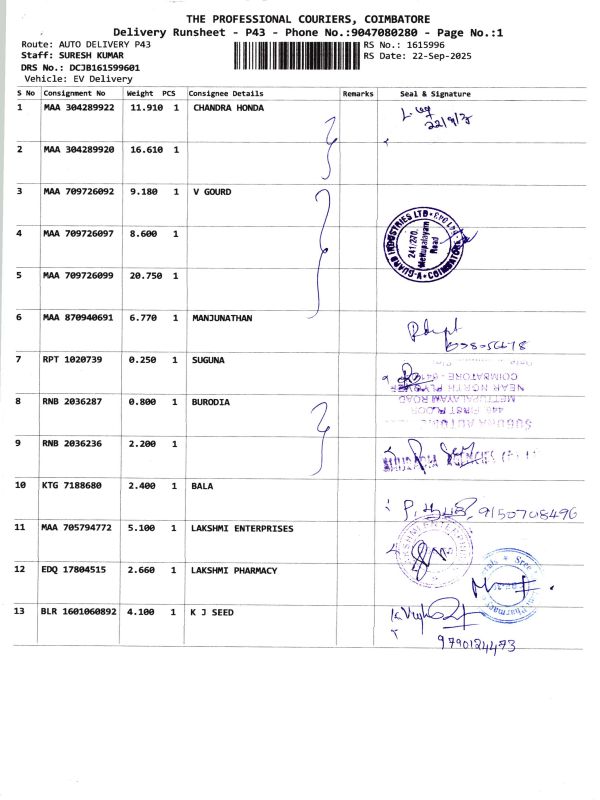 THE PROFESSIONAL COURIERS, COIMBATORE
Delivery Runsheet - P43 - Phone No.:9047080280 - Page No.:1
Route: AUTO DELIVERY P43 RS No.: 1615996
Staff: SURESH KUMAR RS Date: 22-Sep-2025
DRS No.: DCJB161599601
Vehicle: EV Delivery
S No Consignment No Weight PCS Consignee Details Remarks Seal & Signature
1 MAA 304289922 11.910 1 CHANDRA HONDA
22/9/25
2 MAA 304289920 16.610 1
3 MAA 709726092 9.180 1 V GOURD
4 MAA 709726097 8.600 1
GUARD INDUSTRIES LTD
241/270, Mettupalayam Road
COIMBATORE
5 MAA 709726099 20.750 1
6 MAA 870940691 6.770 1 MANJUNATHAN
7 RPT 1020739 0.250 1 SUGUNA
COIMBATORE - 641
NEAR NORTH
METTUPALAYAM ROAD
FIRST FLOOR
8 RNB 2036287 0.800 1 BURODIA
9 RNB 2036236 2.200 1
10 KTG 7188680 2.400 1 BALA
9150708496
11 MAA 705794772 5.100 1 LAKSHMI ENTERPRISES
12 EDQ 17804515 2.660 1 LAKSHMI PHARMACY
13 BLR 1601060892 4.100 1 K J SEED
9790124473